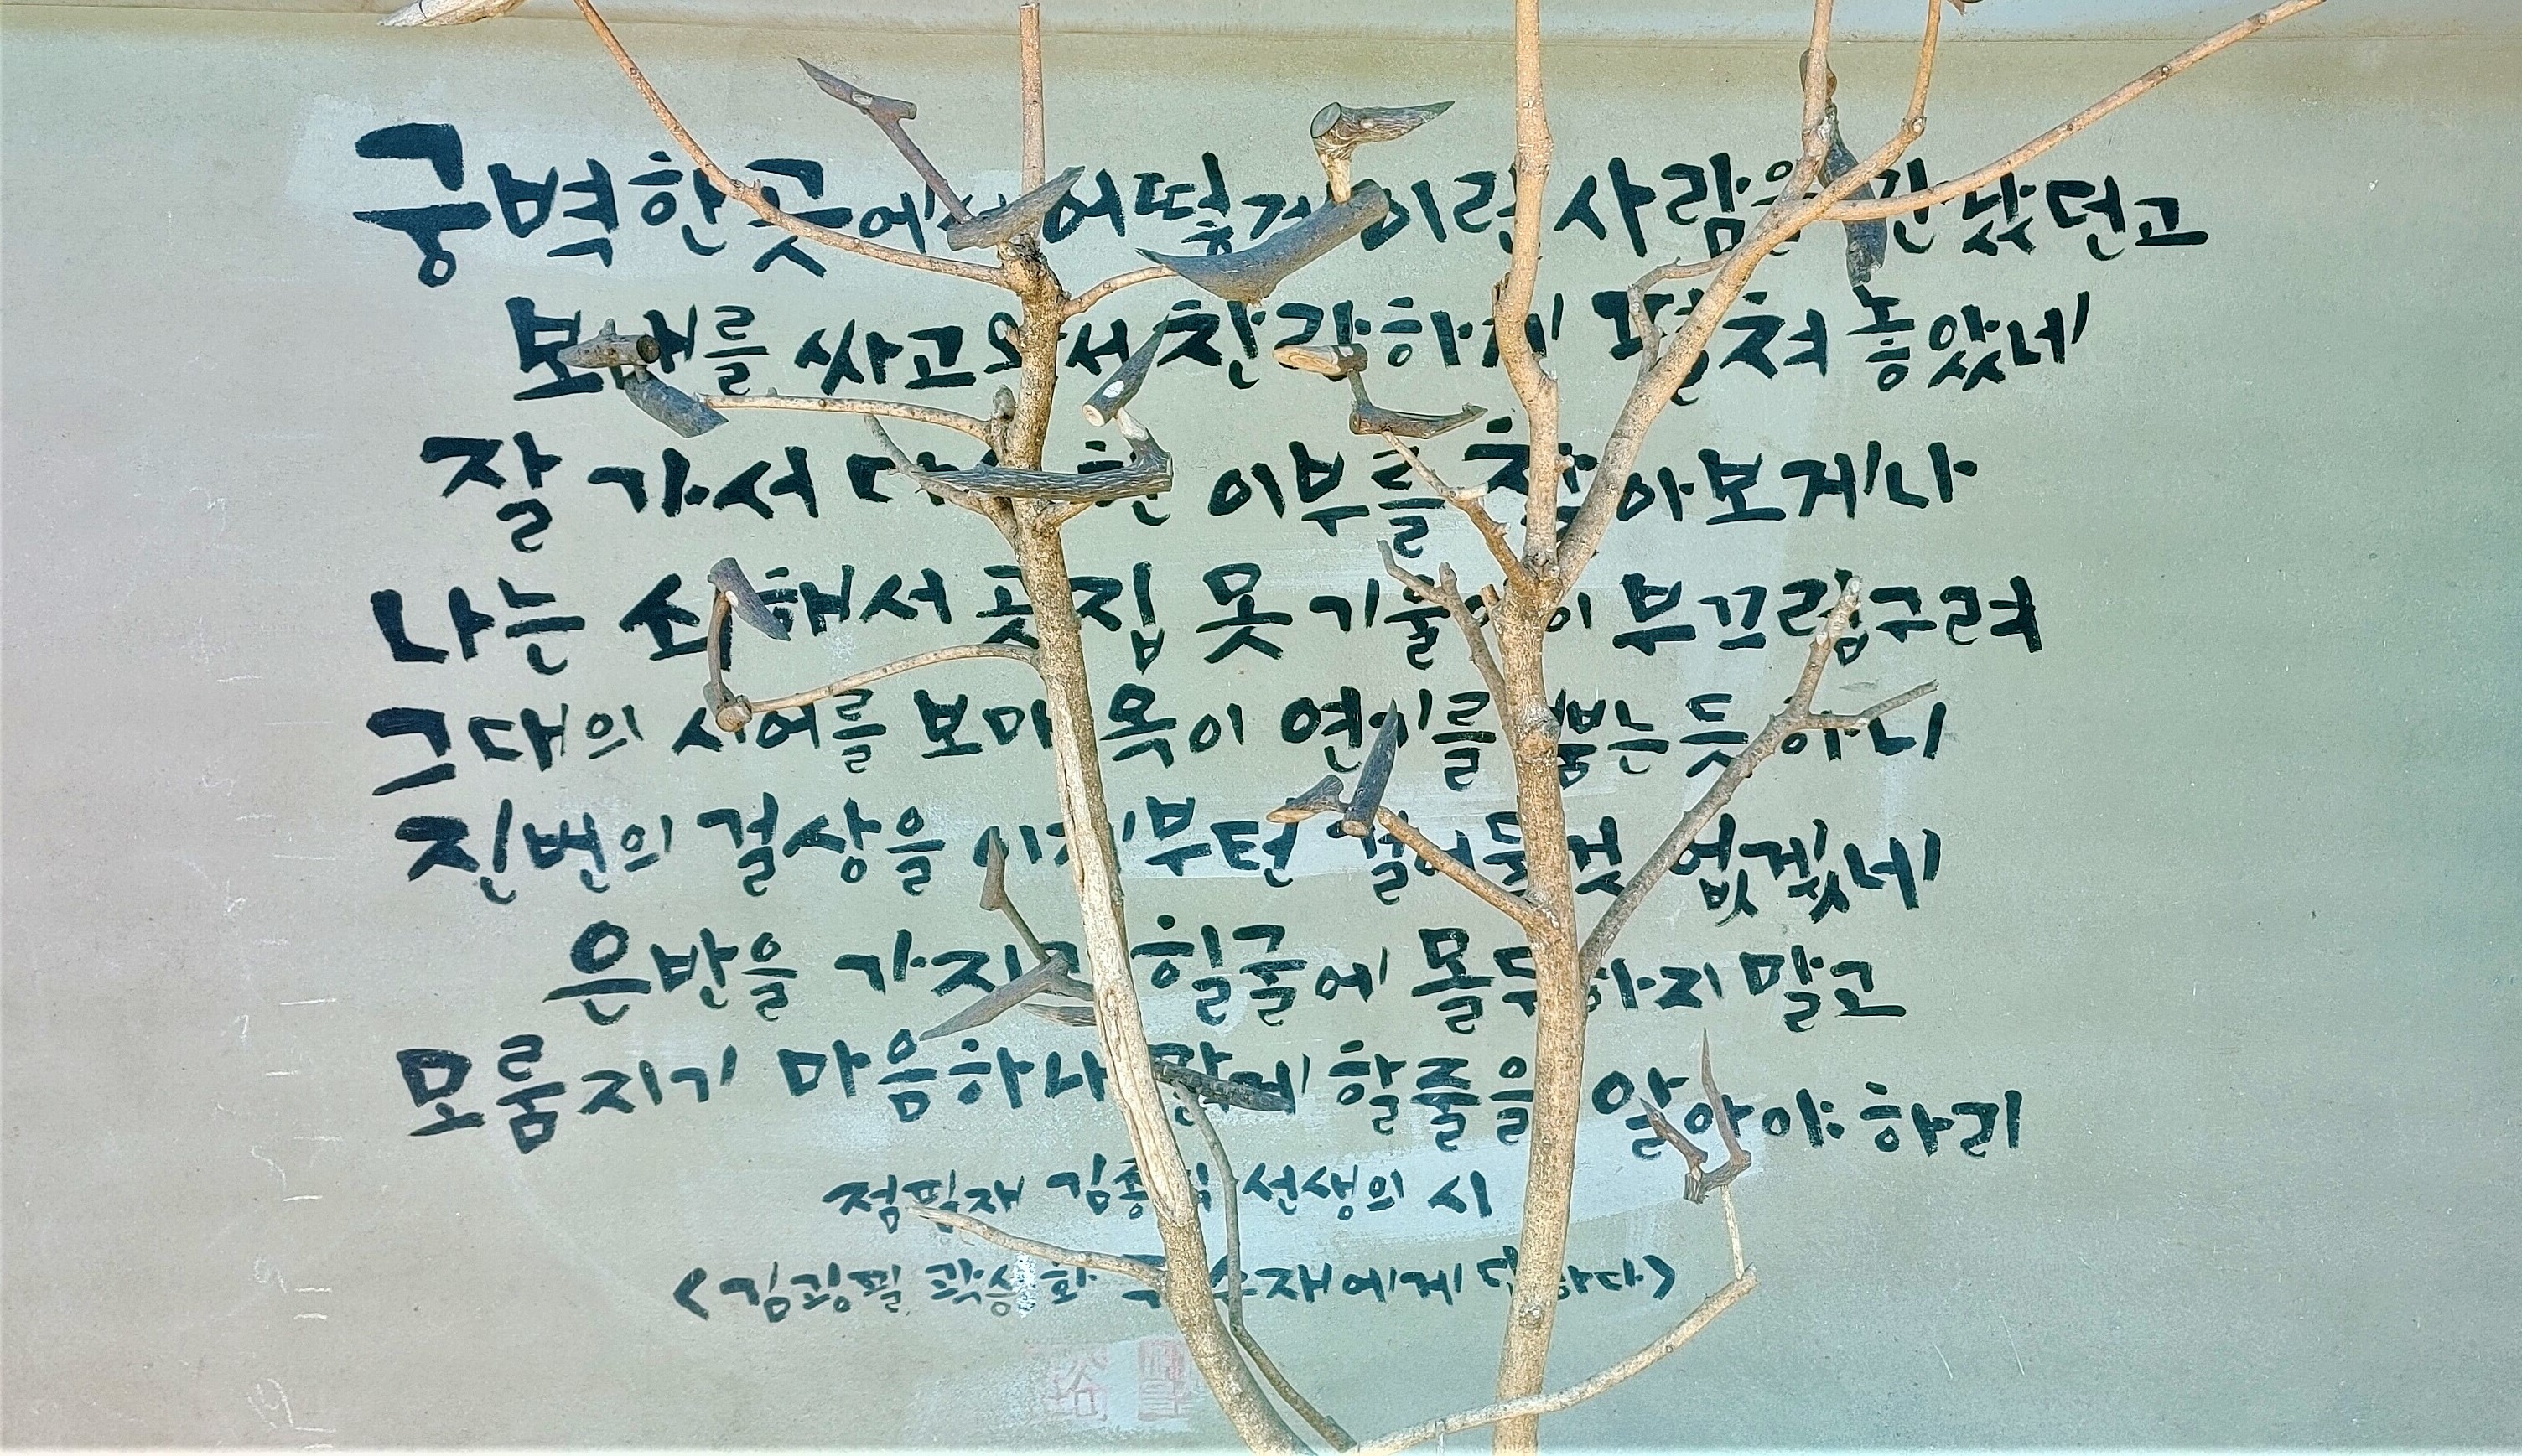 궁벽한곳에서 어떻게 이런 사람을 만났던고
보배를 싸고와서 찬란하게 펼쳐 놓았네
잘 가서 다시한 이부를 찾아보게나
나는 쇠해서 곳집 못 기울임이 부끄럼구려
그대의 시어를 보마 옥이 연기를 뿜는듯 하니
진번의 걸상을 이제부턴 걸어둘것 없겠네
은반을 가지고 힐굴에 몰두하지 말고
모룸지기 마음하나 맑게 할줄을 알아야 하리
점필재 김종직 선생의 시
<김굉필 곽승화 두 수재에게 답하다>